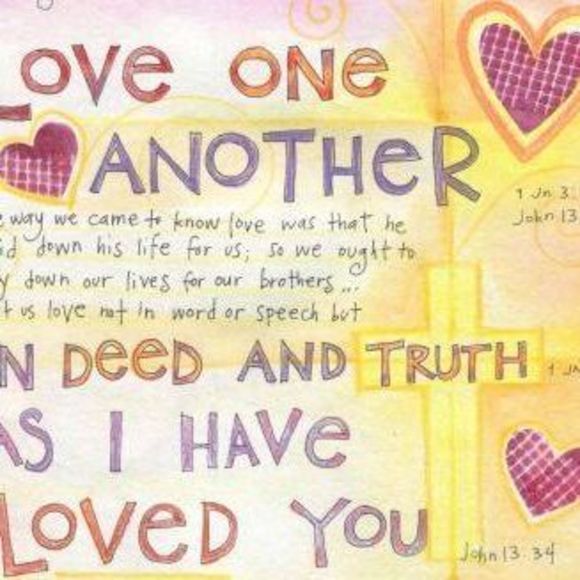 LOVE ONE
ANOTHER
1 Jn 3:
John 13
e way we came to know love was that he
id down his life for us; so we ought to
y down our lives for our brothers...
t us love not in word or speech but
N DEED AND TRUTH
1 JN
AS I HAVE
LOVED YOU
John 13:34